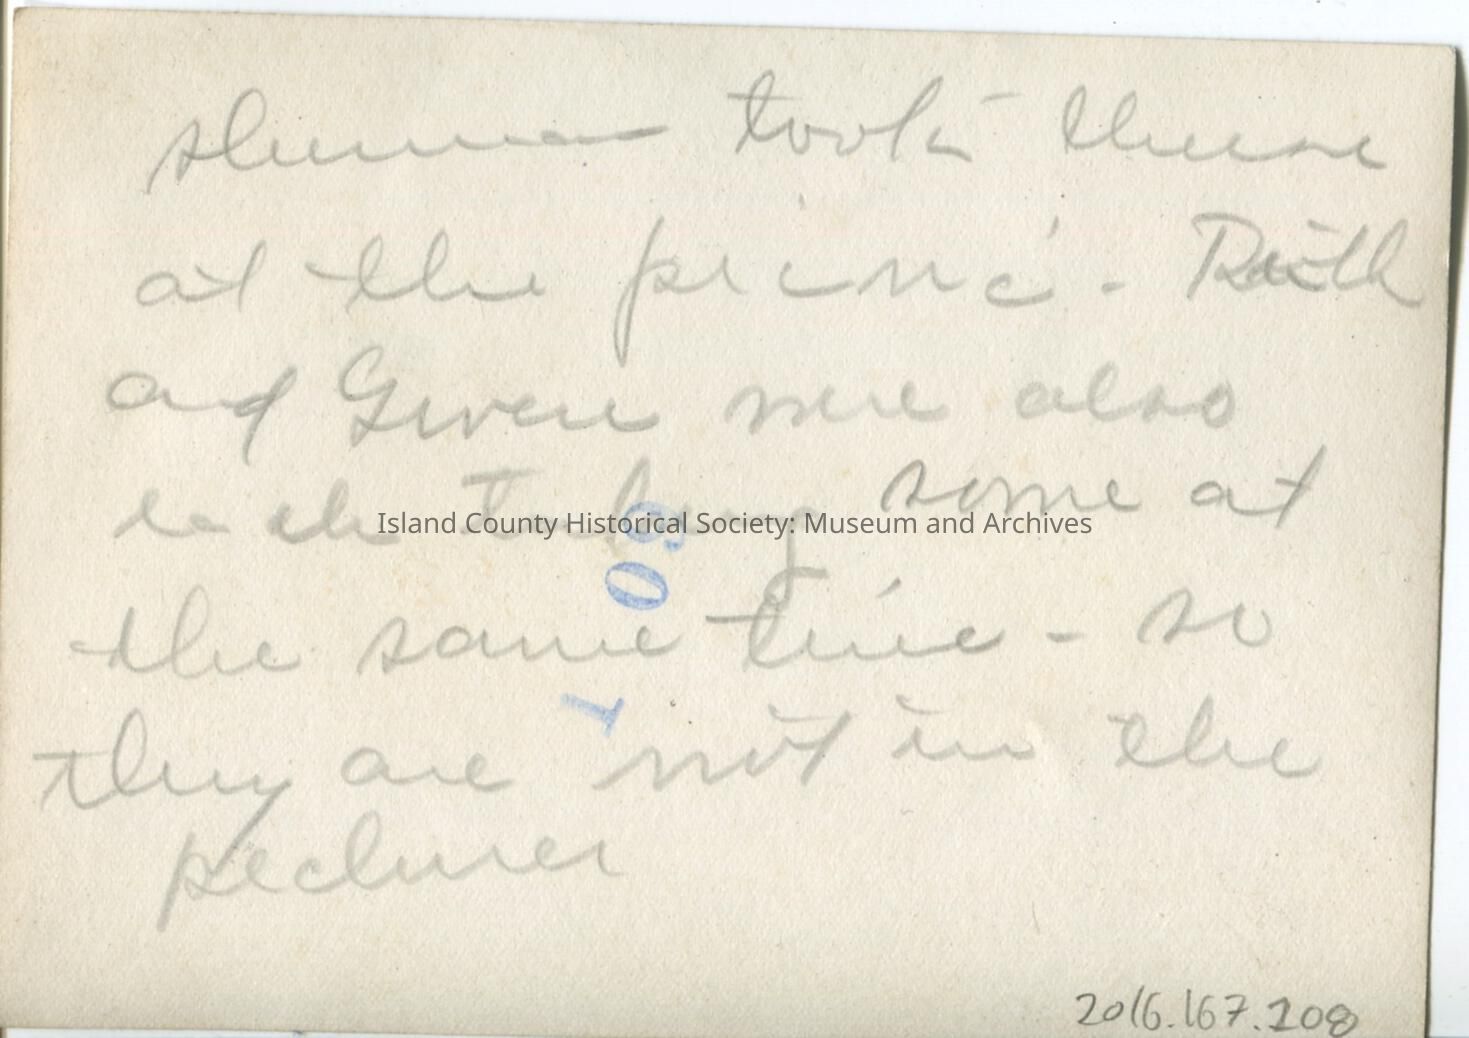 took these
at the picnic. Ruth
and Gwen were also
each taking some at
the same time - so
they are not in the
pictures
Island County Historical Society: Museum and Archives
2016.167.208